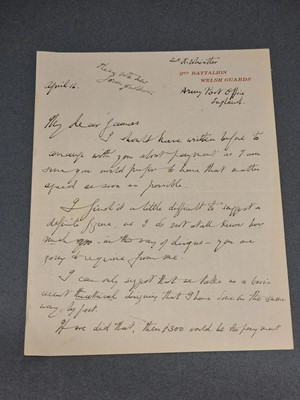 2nd R. Whistler
2ND BATTALION
WELSH GUARDS
April 12.
Army Post Office
England.
My dear James
I should have written before to
arrange with you about payment as I am
sure you would prefer to have that matter
agreed as soon as possible.
I find it a little difficult to suggest a
definite figure, as I do not at all know how
much you - in the way of design - you are
going to require from me.
I can only suggest that we take as a basis
recent theatrical designing that I have done in the same
way, by post.
If we did that, then £300 would be the payment